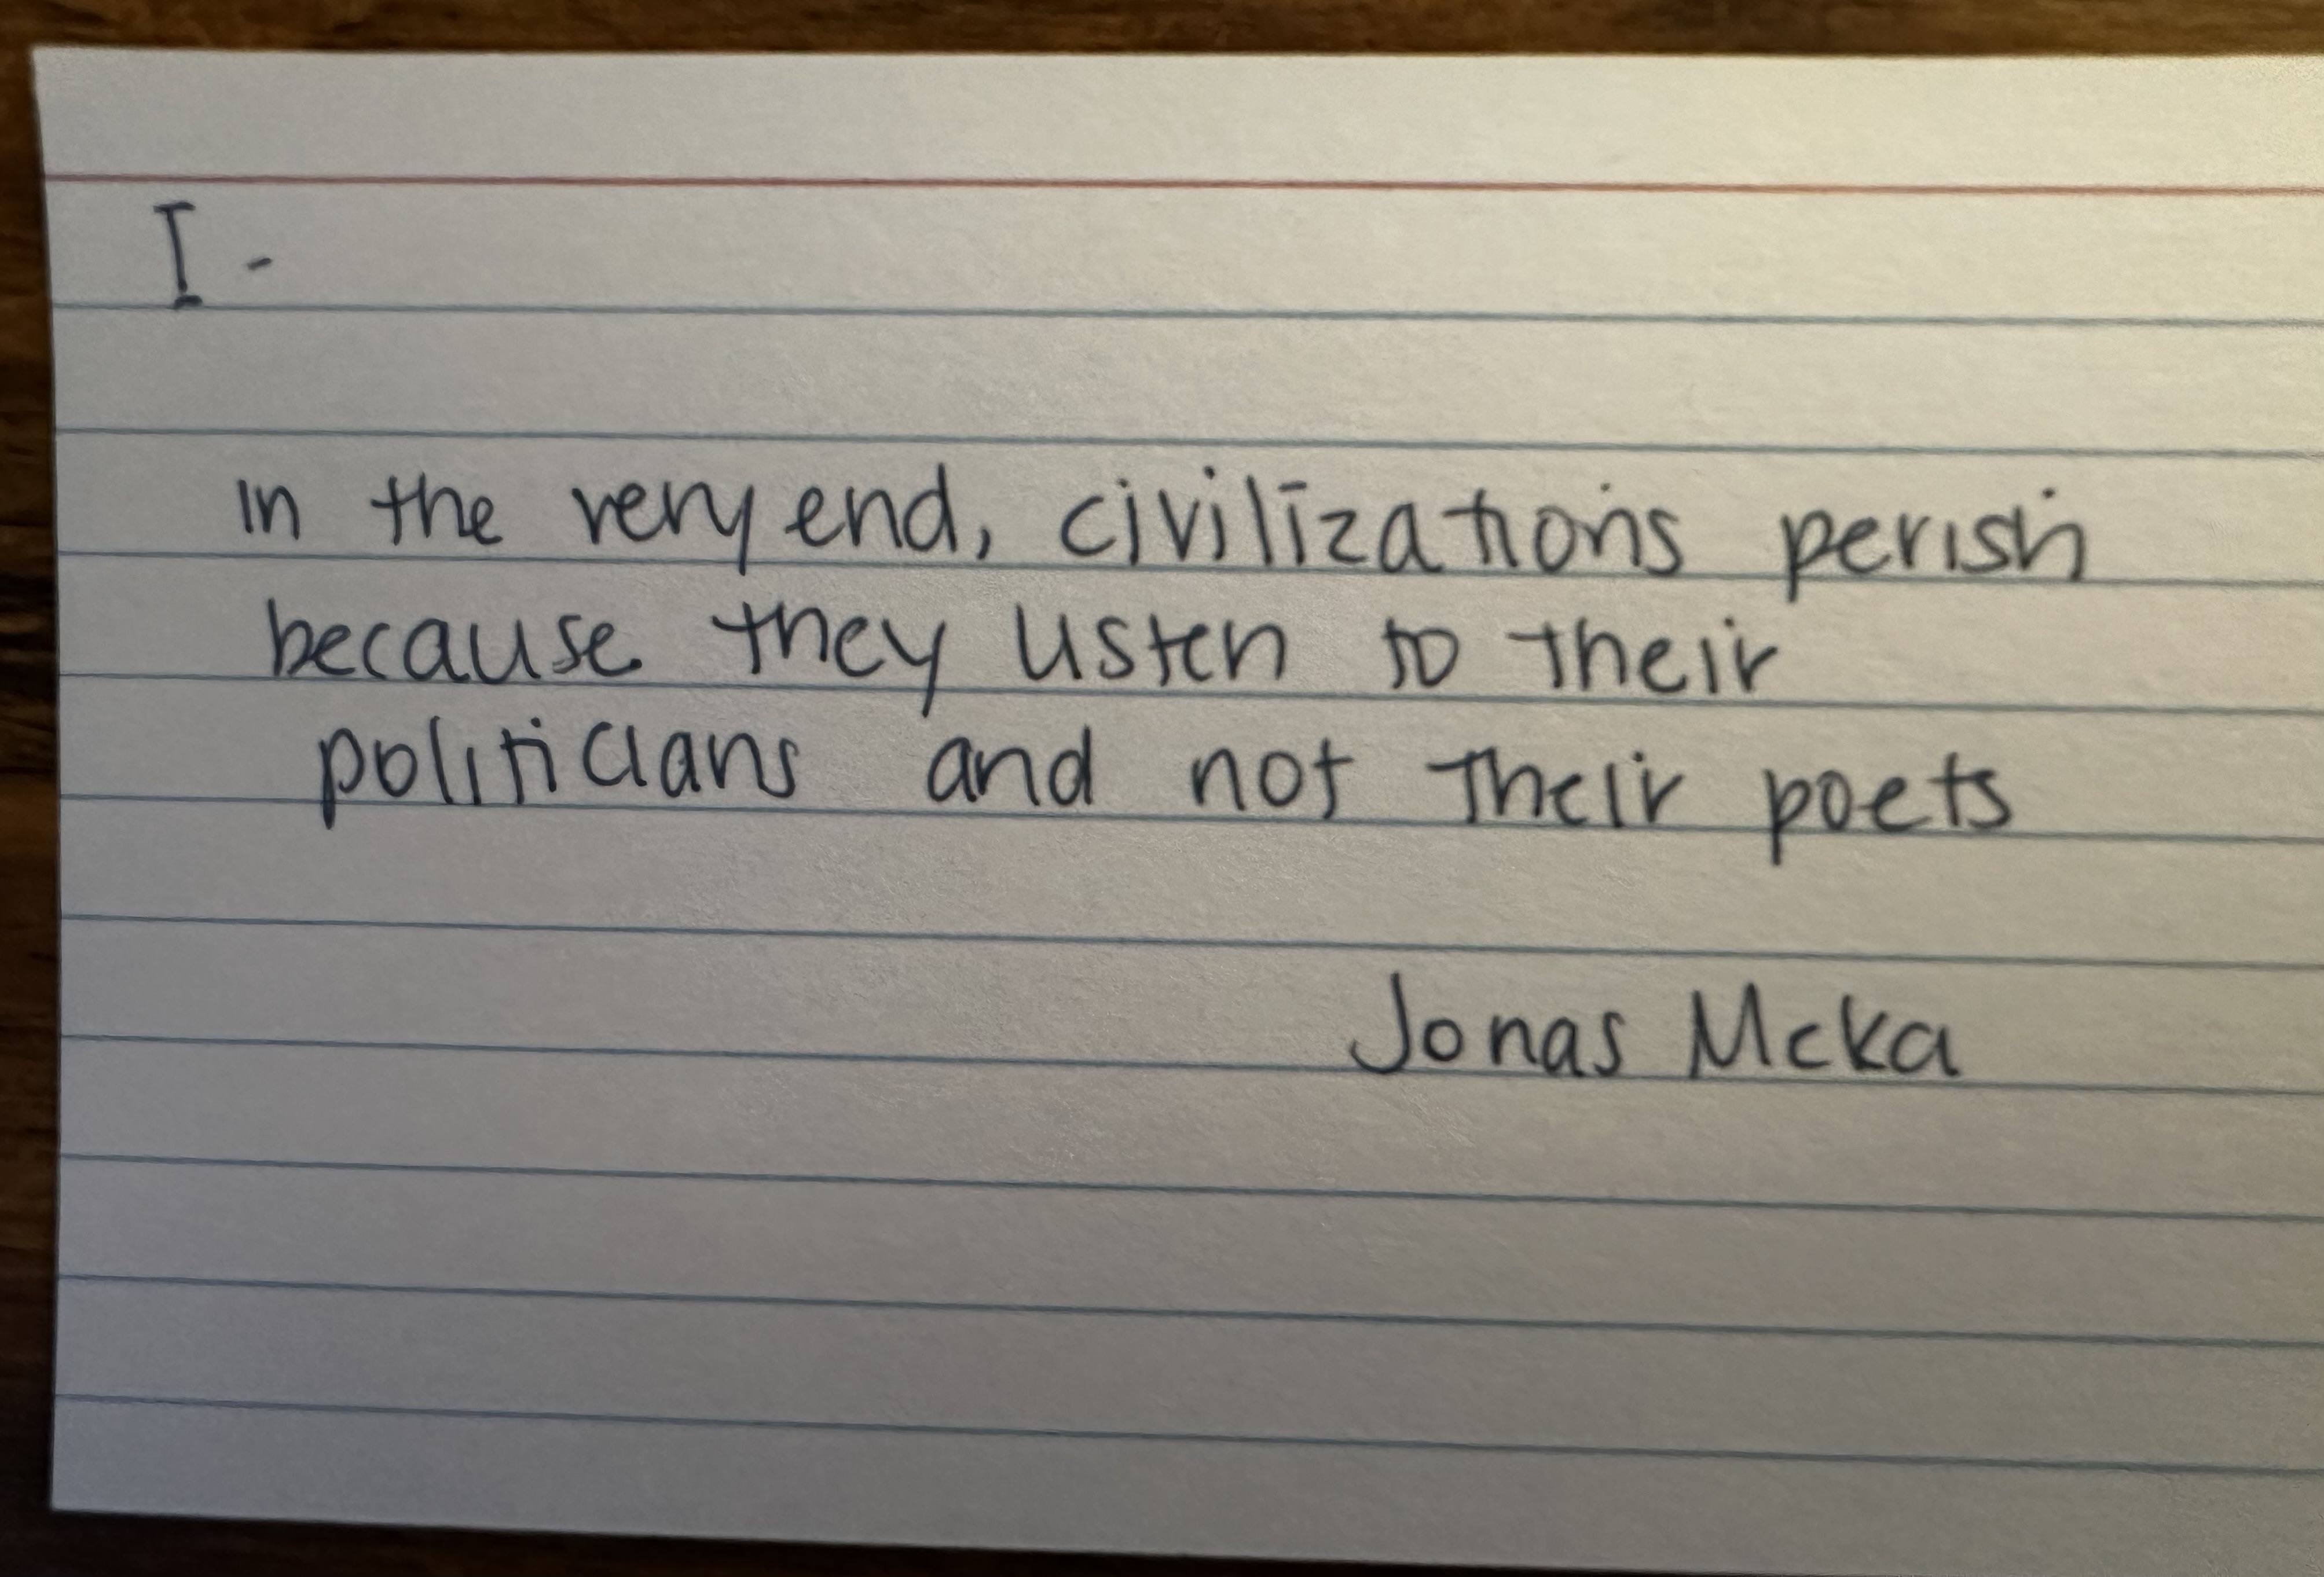 I -
In the very end, civilizations perish
because they listen to their
politicians and not their poets
Jonas Meka